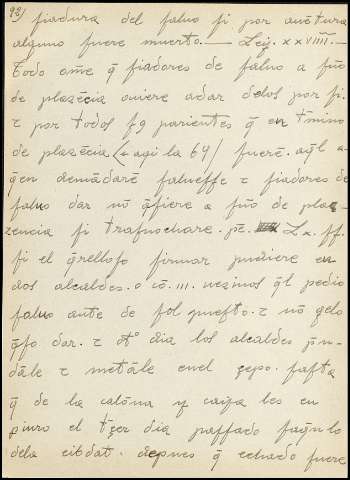 92/ fiadura del saluo si por auētura
alguno fuere muerto. — Ley. xxviiii. —
Todo ome q̄ fiadores de saluo a fuo
de plazēcia ouiere a dar delos por si.
τ por todos sꝯ parientes q̄ en t̄mino
de plazēcia (← aqi la 64/ fuerē. aq̄l a
qen demādarē salueffe τ fiadores de
saluo dar nō q̄siere a fuo de pla-
zencia si trasnochare. pe. Lx. ss.
si el q̄relloso firmar pudiere en
dos alcaldes. o cō .iii. uezinos q̄l pedio
saluo ante de sol puesto. τ nō gelo
q̄so dar. τ ot° dia los alcaldes p̄n-
dāle τ metāle enel çepo. fasta
q̄ de la calōna y caiga les en
piuro el t̄çer dia passado saq̄nlo
dela cibdat. depues q̄ echado fuere